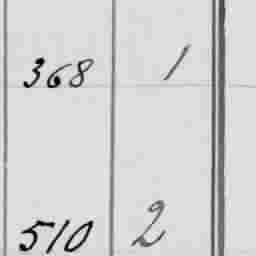 368 1
510 2